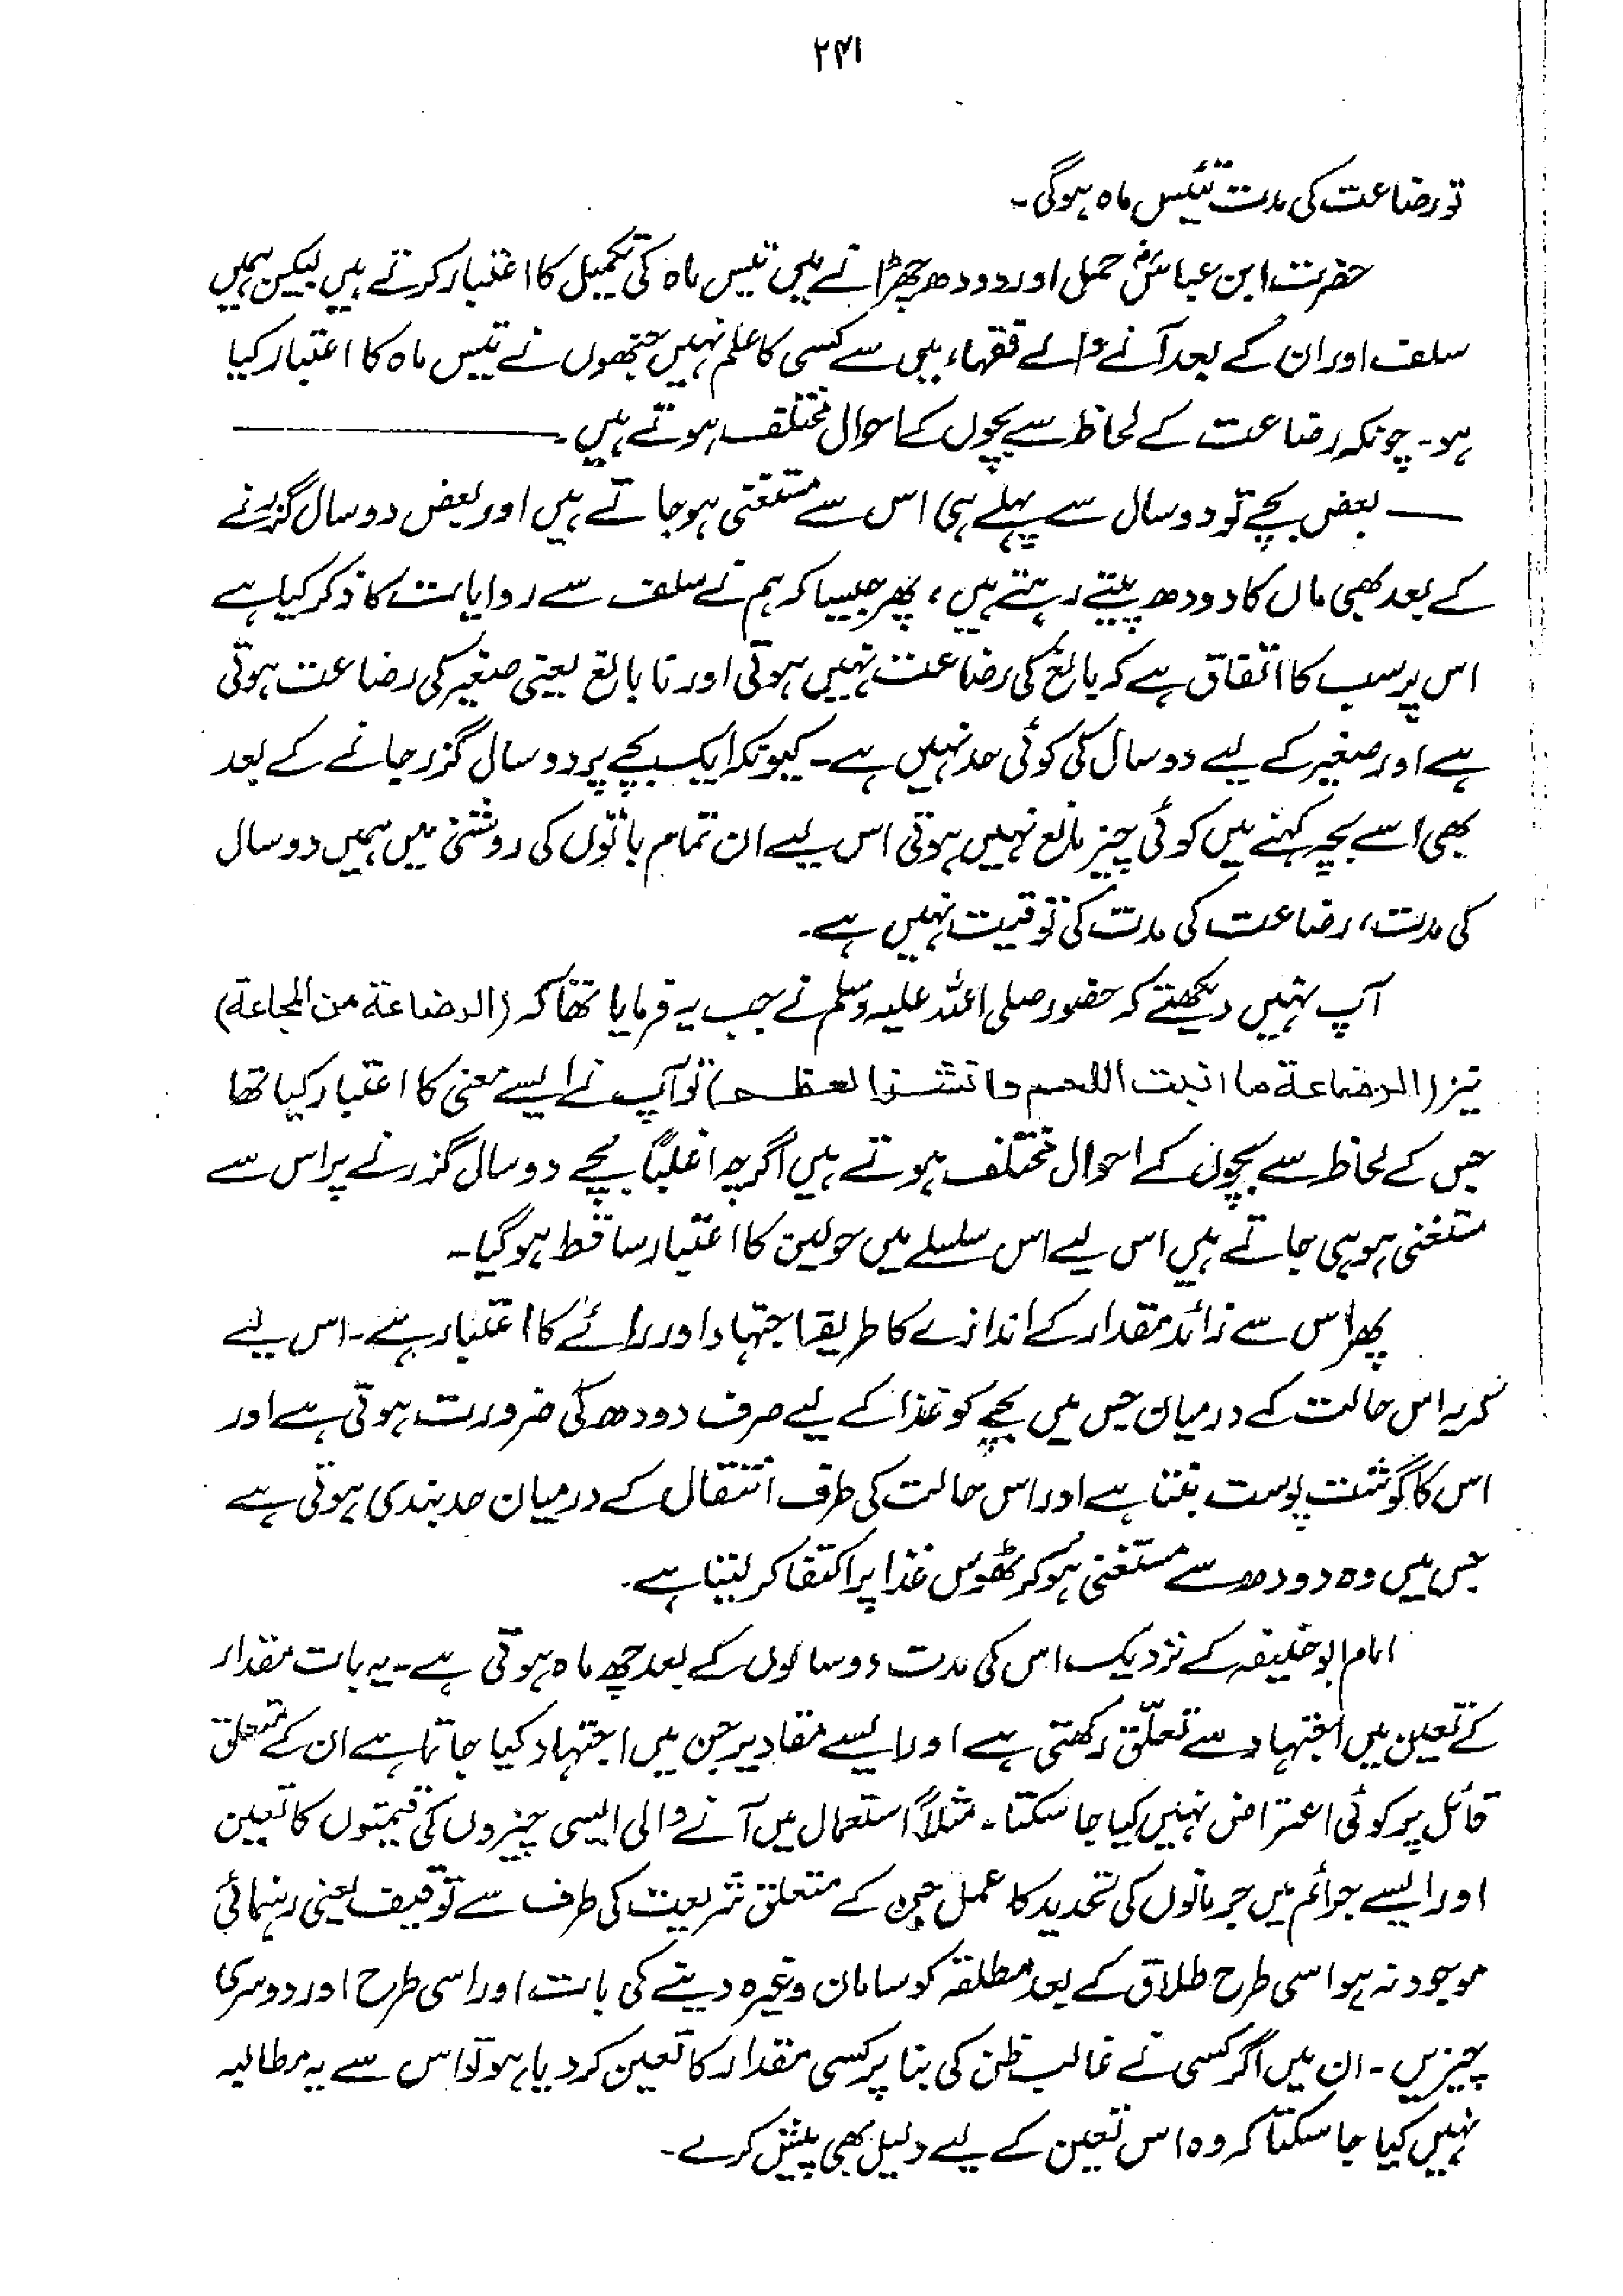 ۲۴۱
تو رضاعت کی مدت تئیس ماہ ہوگی۔
حضرت ابن عباسؓ حمل اور دودھ چھڑانے میں تیس ماہ کی تکمیل کا اعتبار کرتے ہیں لیکن ہمیں
سلف اور ان کے بعد آنے والے فقہاء میں سے کسی کا علم نہیں جنھوں نے تیس ماہ کا اعتبار کیا
ہو۔ چونکہ رضاعت کے لحاظ سے بچوں کے احوال مختلف ہوتے ہیں۔ ــــــــــــــــ
ــــ بعض بچے تو دو سال سے پہلے ہی اس سے مستغنی ہو جاتے ہیں اور بعض دو سال گزرنے
کے بعد بھی ماں کا دودھ پیتے رہتے ہیں، پھر جیسا کہ ہم نے سلف سے روایات کا ذکر کیا ہے
اس پر سب کا اتفاق ہے کہ بالغ کی رضاعت نہیں ہوتی اور نابالغ یعنی صغیر کی رضاعت ہوتی
ہے اور صغیر کے لیے دو سال کی کوئی حد نہیں ہے۔ کیونکہ ایک بچے پر دو سال گزر جانے کے بعد
بھی اسے بچہ کہنے میں کوئی چیز مانع نہیں ہوتی اس لیے ان تمام باتوں کی روشنی میں ہمیں دو سال
کی مدت، رضاعت کی مدت کی توقیت نہیں ہے۔
آپ نہیں دیکھتے کہ حضور صلی اللہ علیہ وسلم نے جب یہ فرمایا تھا کہ (الرضاعة من المجاعة)
نیز (الرضاعة ما انبت اللحم وانشز العظم) تو آپ نے ایسے معنی کا اعتبار کیا تھا
جس کے لحاظ سے بچوں کے احوال مختلف ہوتے ہیں اگرچہ اغلباً بچے دو سال گزرنے پر اس سے
مستغنی ہو ہی جاتے ہیں اس لیے اس سلسلے میں حولین کا اعتبار ساقط ہوگیا۔
پھر اس سے زائد مقدار کے اندازے کا طریقہ اجتہاد اور رائے کا اعتبار ہے۔ اس لیے
کہ یہ اس حالت کے درمیان جس میں بچے کو غذا کے لیے صرف دودھ کی ضرورت ہوتی ہے اور
اس کا گوشت پوست بنتا ہے اور اس حالت کی طرف انتقال کے درمیان حد بندی ہوتی ہے
جس میں وہ دودھ سے مستغنی ہو کر ٹھوس غذا پر اکتفا کر لیتا ہے۔
امام ابو حنیفہ کے نزدیک اس کی مدت دو سالوں کے بعد چھ ماہ ہوتی ہے۔ یہ بات مقدار
کے تعین میں اجتہاد سے تعلّق رکھتی ہے اور ایسے مقادیر جن میں اجتہاد کیا جاتا ہے ان کے متعلق
قائل پر کوئی اعتراض نہیں کیا جا سکتا۔ مثلاً استعمال میں آنے والی ایسی چیزوں کی قیمتوں کا تعین
اور ایسے جرائم میں جرمانوں کی تحدید کا عمل جن کے متعلق شریعت کی طرف سے توقیف یعنی رہنمائی
موجود نہ ہو اسی طرح طلاق کے بعد مطلقہ کو سامان وغیرہ دینے کی بات اور اسی طرح اور دوسری
چیزیں۔ ان میں اگر کسی نے غالب ظن کی بنا پر کسی مقدار کا تعین کر دیا ہو تو اس سے یہ مطالبہ
نہیں کیا جا سکتا کہ وہ اس تعین کے لیے دلیل بھی پیش کرے۔